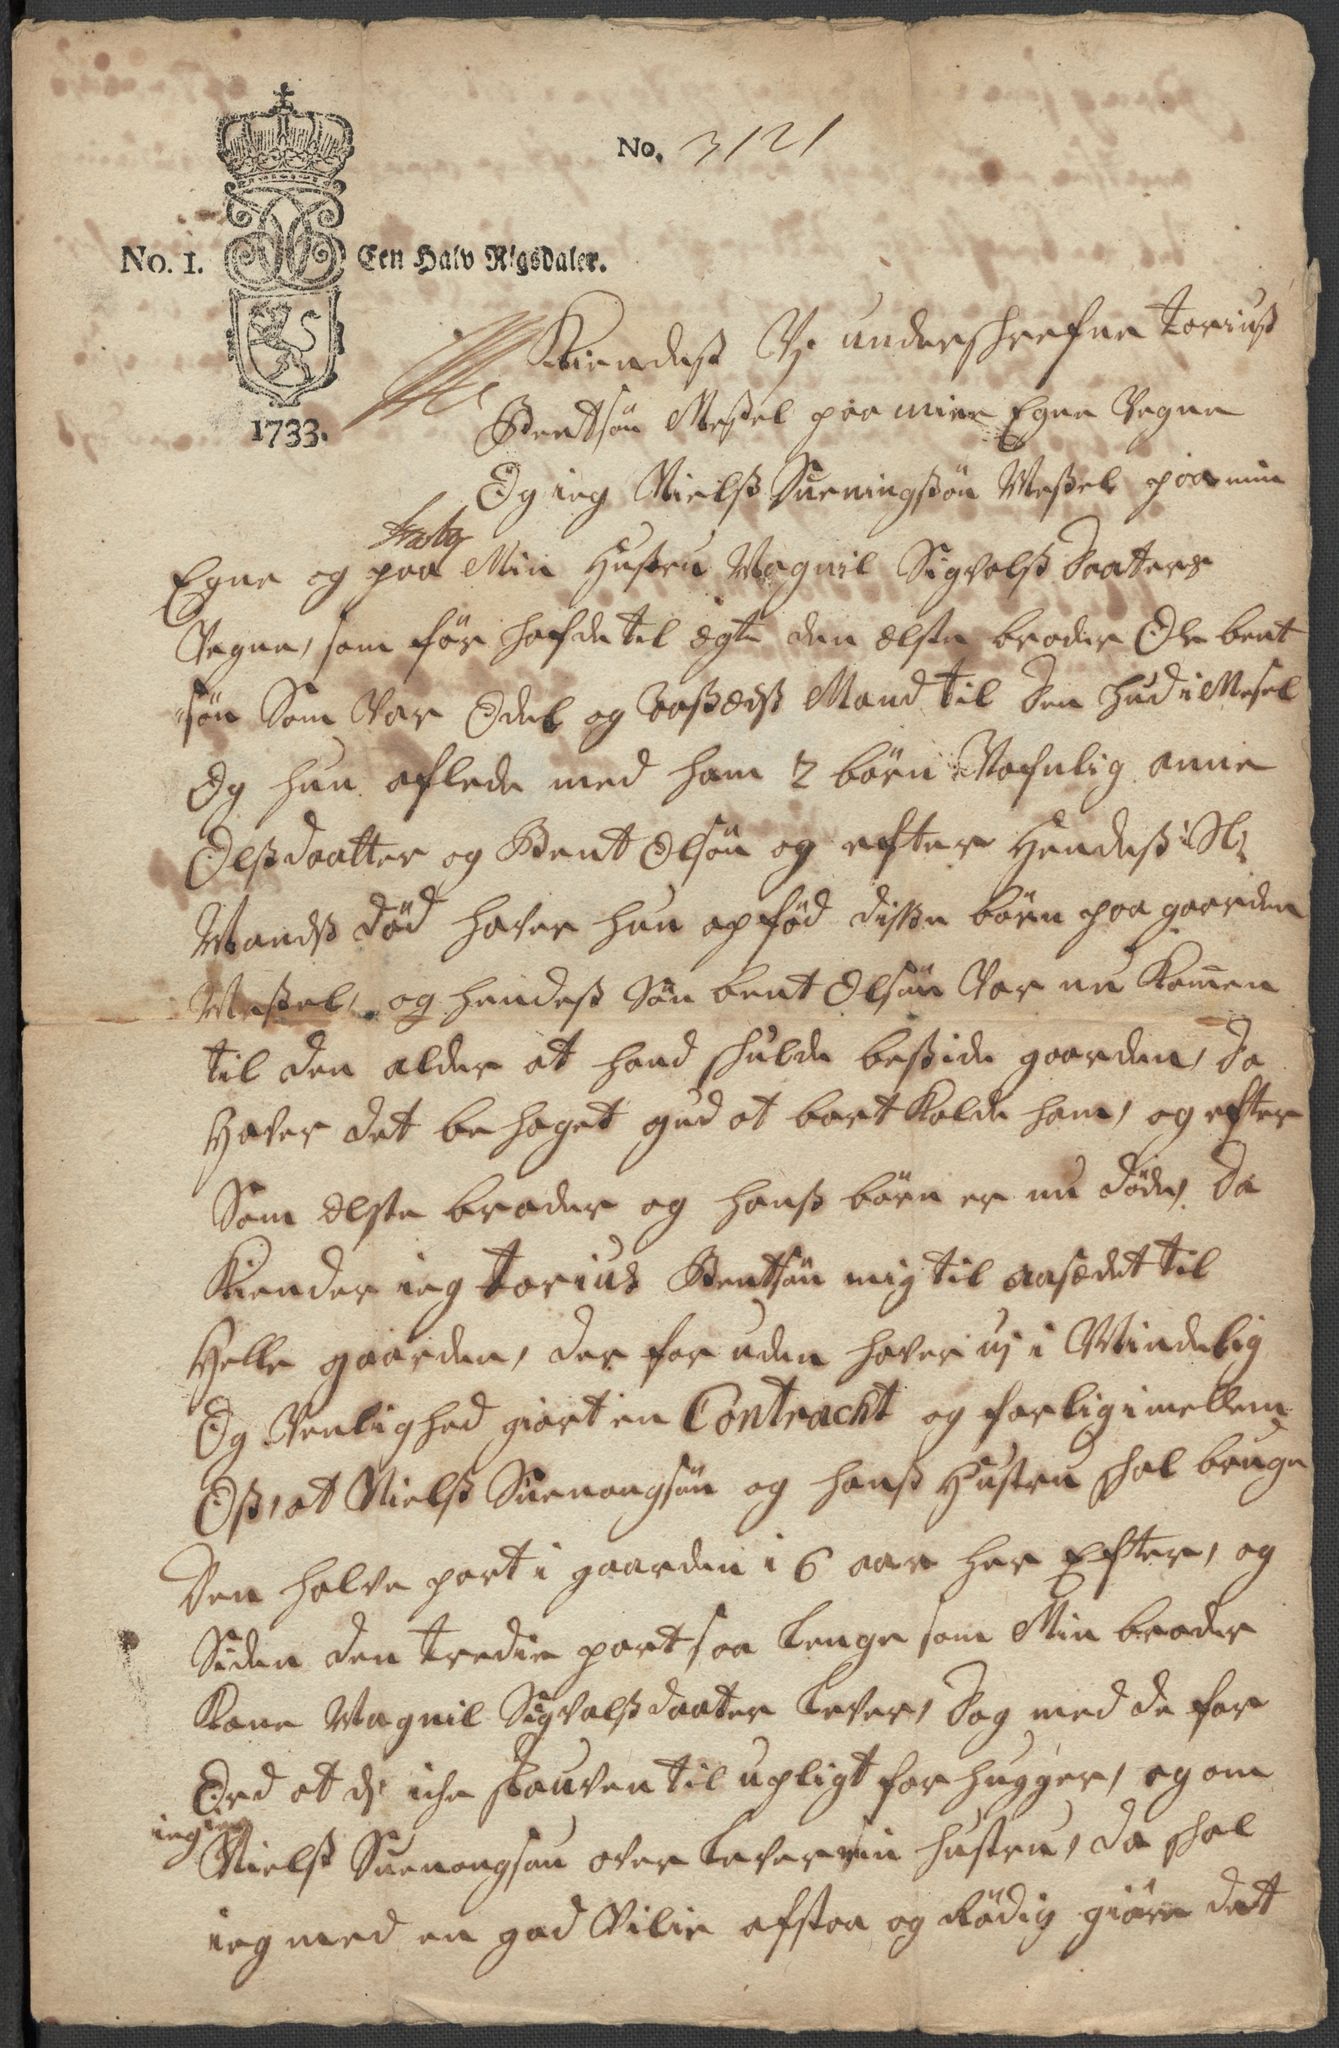 No. 3121
No. 1. Een Halv Rigsdaler.
1733.
Kiendes Vj underskrefne Toriuß
Bentsøn Meßel paa mine Egne Vegne
Og ieg Nielß Sueningßøn Meßel paa min
Egne og paa Min Hustru Magnil Sigvalß Daaters
Vegne, som før hafde til ægte den elste broder Ole bent
søn Som Var Odel og aaßædß Mand til den hud i Mesel
Og hun aflede med ham 2 børn Nafnlig anne
Olßdaatter og Bent Olsøn og efter Hendeß Sl:
Mandß død haver hun opfød disse børn paa gaarden
Meßel, og hendeß Søn bent Olsøn Var nu Komen
til den alder at hand skulde beßide gaarden, da
Haver det behaget gud at bort Kalde ham, og efter
Som elste broder og hanß børn er nu døde, da
Kiender ieg Torius Bentsøn mig til aasædet til
Helle gaarden, der for uden haver vj i Mindelig
Og Venlighed giort en Contracht og forlig imellem
Oß, at Nielß Suenongsøn og hanß Hustru skal bruge
Den halve part i gaarden i 6 aar her Efter, og
Siden den tredie part saa Lenge som Min broder
Kone Magnil Sigvalßdaater Lever, Dog med de for
Ord at di iche skauven til upligt forhugger, og om
ieg
Nielß Suenongsøn over Lever min hustru, da skal
ieg med en god Vilie afstaa og Rødig giøre det